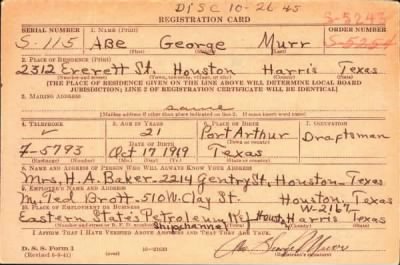 DISC 10-26-45
REGISTRATION CARD
SERIAL NUMBER 1. NAME (Print) ORDER NUMBER
S-5243
S-115 Abe George Murr S-5254
(First) (Middle) (Last)
2. PLACE OF RESIDENCE (Print)
2312 Everett St. Houston Harris Texas
[THE PLACE OF RESIDENCE GIVEN ON THE LINE ABOVE WILL DETERMINE LOCAL BOARD
JURISDICTION; LINE 2 OF REGISTRATION CERTIFICATE WILL BE IDENTICAL]
3. MAILING ADDRESS
same
[Mailing address if other than place indicated on line 2. If same insert word same]
4. TELEPHONE 5. AGE IN YEARS 6. PLACE OF BIRTH 7. OCCUPATION
21 Port Arthur Draftsman
DATE OF BIRTH (Town or county)
7-5793 Oct 17 1919 Texas
(Exchange) (Number) (Mo.) (Day) (Yr.) (State or country)
8. NAME AND ADDRESS OF PERSON WHO WILL ALWAYS KNOW YOUR ADDRESS
Mrs. H. A. Baker - 2214 Gentry St, Houston, Texas
9. EMPLOYER'S NAME AND ADDRESS
Mr. Ted Brott - 510 W. Clay St. Houston, Texas
10. PLACE OF EMPLOYMENT OR BUSINESS W-2167
Eastern States Petroleum Ref Houston Harris Texas
Shipchannel
I AFFIRM THAT I HAVE VERIFIED ABOVE ANSWERS AND THAT THEY ARE TRUE.
D. S. S. Form 1
Abe George Murr